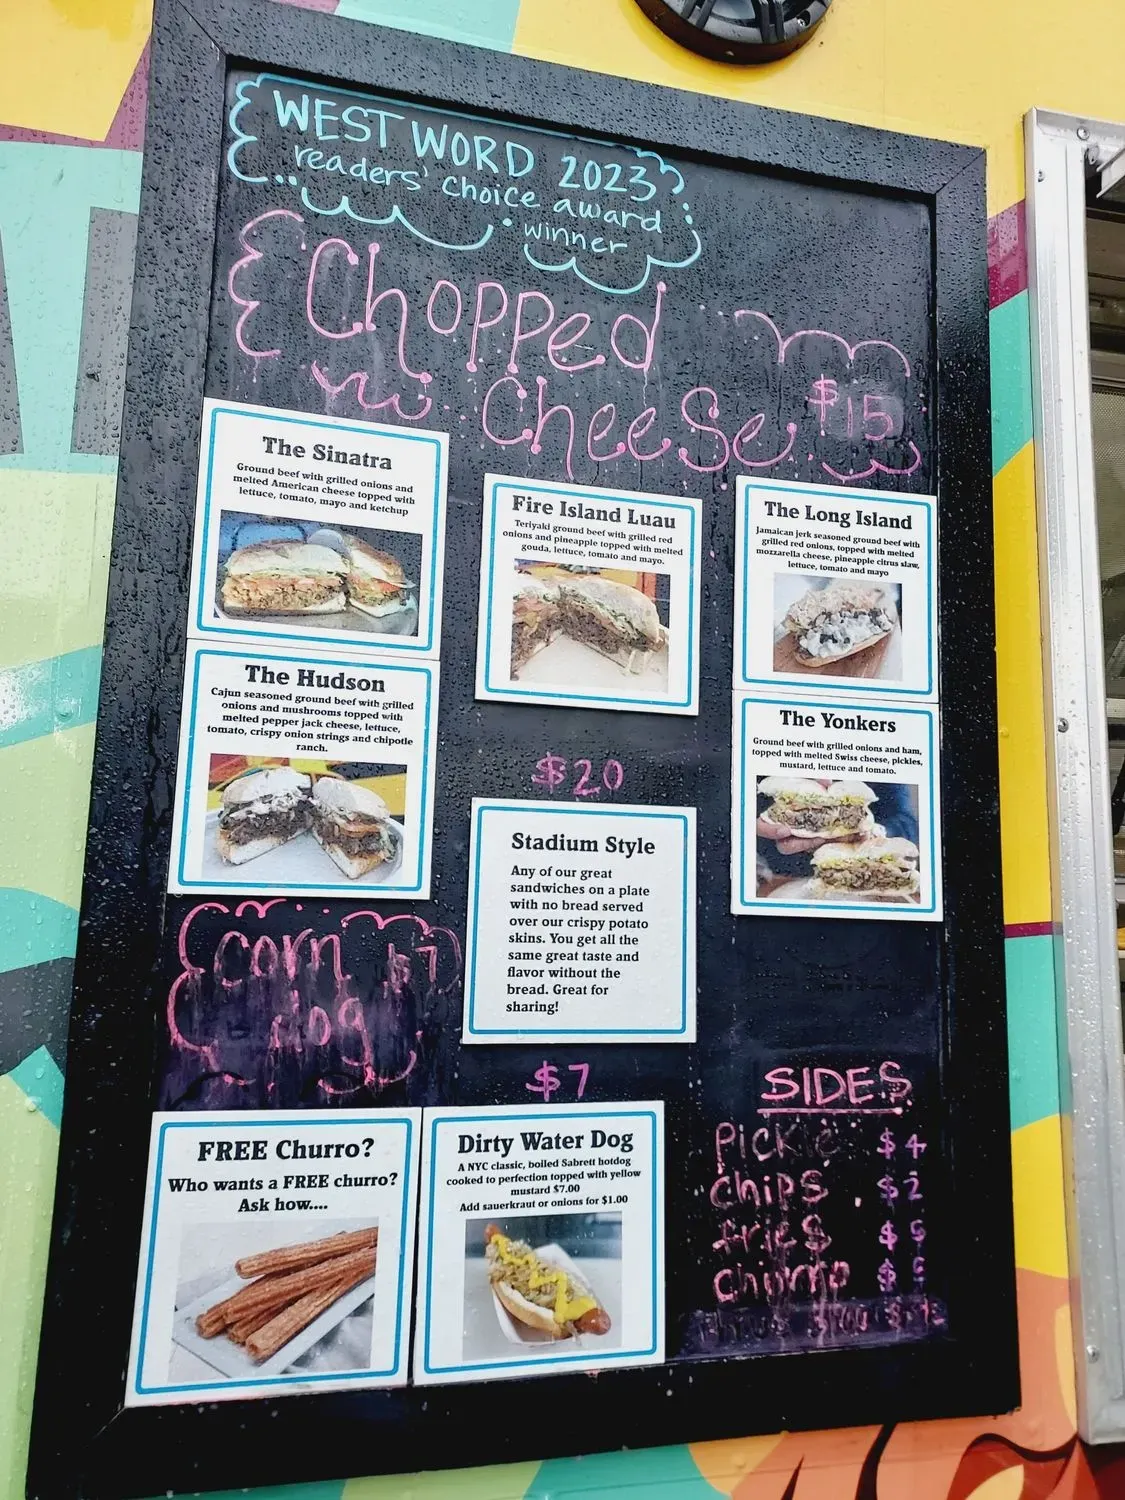 WEST WORD 2023
readers' choice award
winner
Chopped
Cheese $15
The Sinatra
Ground beef with grilled onions and
melted American cheese topped with
lettuce, tomato, mayo and ketchup
Fire Island Luau
Teriyaki ground beef with grilled red
onions and pineapple topped with melted
gouda, lettuce, tomato and mayo.
The Long Island
Jamaican jerk seasoned ground beef with
grilled red onions, topped with melted
mozzarella cheese, pineapple citrus slaw,
lettuce, tomato and mayo
The Hudson
Cajun seasoned ground beef with grilled
onions and mushrooms topped with
melted pepper jack cheese, lettuce,
tomato, crispy onion strings and chipotle
ranch.
The Yonkers
Ground beef with grilled onions and ham,
topped with melted Swiss cheese, pickles,
mustard, lettuce and tomato.
$20
Stadium Style
Any of our great
sandwiches on a plate
with no bread served
over our crispy potato
skins. You get all the
same great taste and
flavor without the
bread. Great for
sharing!
corn $7
dog
FREE Churro?
Who wants a FREE churro?
Ask how....
$7
Dirty Water Dog
A NYC classic, boiled Sabrett hotdog
cooked to perfection topped with yellow
mustard $7.00
Add sauerkraut or onions for $1.00
SIDES
Pickle $4
chips $2
fries $5